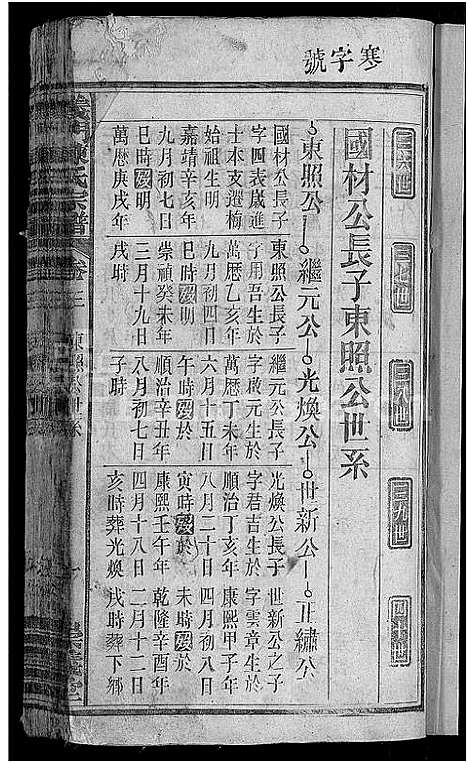 寒字號
三六世
三七世
三八世
三九世
四十世
國材公長子東照公世系
東照公 繼元公 光煥公 世新公 正繡公
國材公長子
字四表歲進
士本支遷楠
始祖生明
嘉靖辛亥年
九月初七日
巳時歿明
萬歷庚戌年
東照公長子
字用吾生於
萬歷乙亥年
九月初四日
巳時歿明
崇禎癸未年
三月十九日
戌時
繼元公長子
字啟元生於
萬歷丁未年
六月十五日
午時歿於
順治辛丑年
八月初七日
子時
光煥公長子
字君吉生於
順治丁亥年
八月二十日
寅時歿於
康熙壬午年
四月十八日
亥時葬光煥
世新公之子
字雲章生於
康熙甲子年
四月初八日
未時歿於
乾隆癸酉年
二月十二日
戌時葬下鄉
義門陳氏宗譜
東照公世系